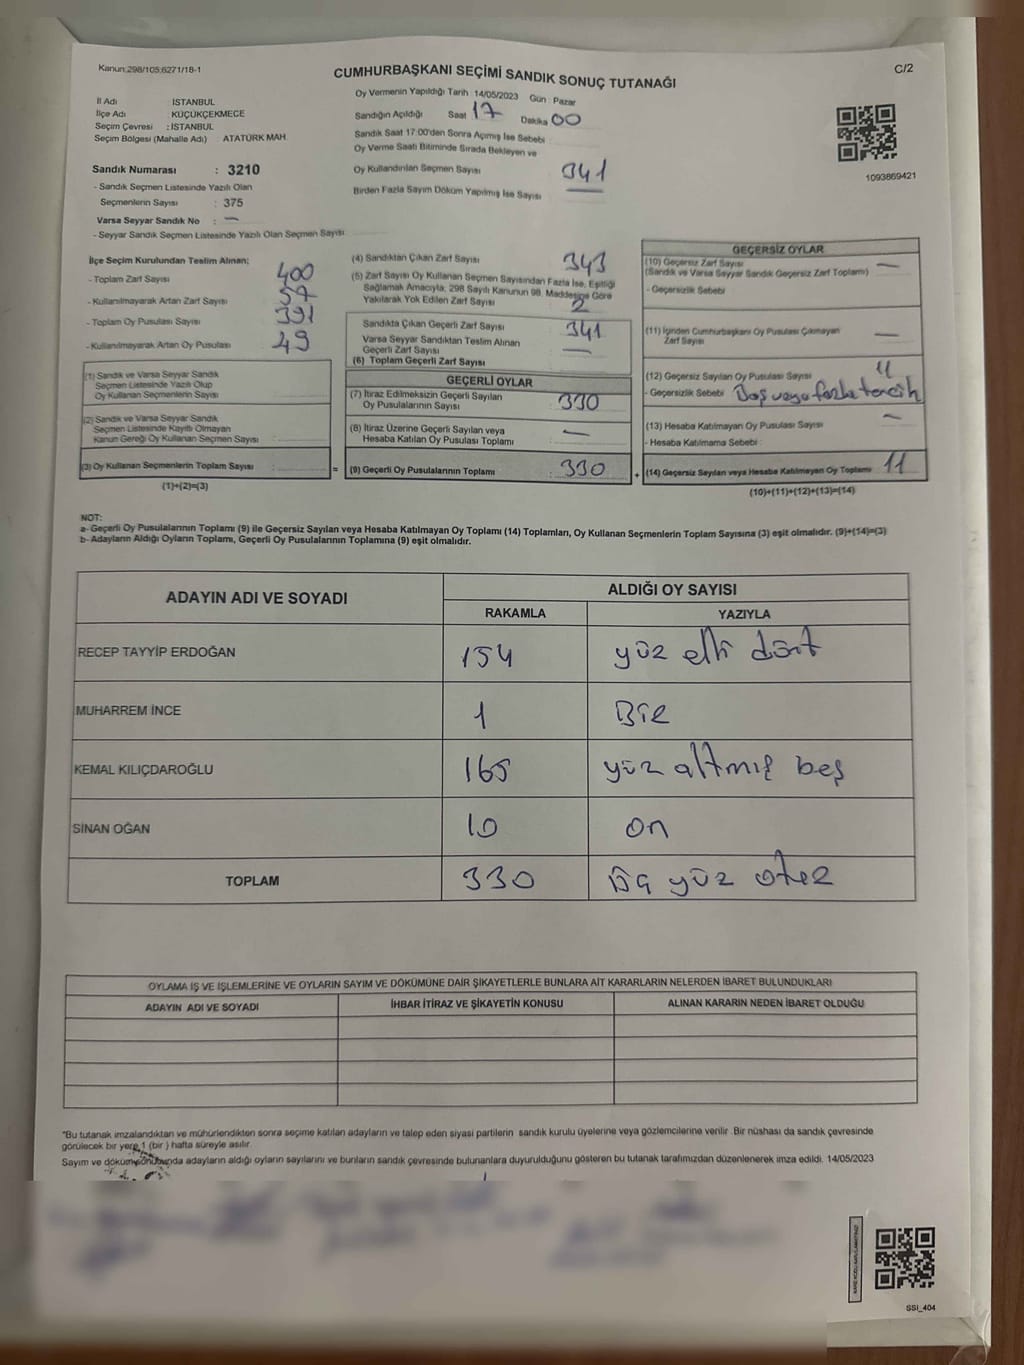 Kanun:298/105:6271/18-1
CUMHURBAŞKANI SEÇİMİ SANDIK SONUÇ TUTANAĞI
C/2
İl Adı : İSTANBUL
İlçe Adı : KÜÇÜKÇEKMECE
Seçim Çevresi : İSTANBUL
Seçim Bölgesi (Mahalle Adı) : ATATÜRK MAH.
Sandık Numarası : 3210
- Sandık Seçmen Listesinde Yazılı Olan
Seçmenlerin Sayısı : 375
Varsa Seyyar Sandık No : —
- Seyyar Sandık Seçmen Listesinde Yazılı Olan Seçmen Sayısı
Oy Vermenin Yapıldığı Tarih :14/05/2023 Gün : Pazar
Sandığın Açıldığı Saat 17 Dakika 00
Sandık Saat 17:00'den Sonra Açımış İse Sebebi :
Oy Verme Saati Bitiminde Sırada Bekleyen ve
Oy Kullandırılan Seçmen Sayısı 341
Birden Fazla Sayım Döküm Yapılmış İse Sayısı —
1093869421
İlçe Seçim Kurulundan Teslim Alınan;
- Toplam Zarf Sayısı 400
- Kullanılmayarak Artan Zarf Sayısı 57
- Toplam Oy Pusulası Sayısı 391
- Kullanılmayarak Artan Oy Pusulası 49
(1) Sandık ve Varsa Seyyar Sandık
Seçmen Listesinde Yazılı Olup
Oy Kullanan Seçmenlerin Sayısı :
(2) Sandık ve Varsa Seyyar Sandık
Seçmen Listesinde Kayıtlı Olmayan
Kanun Gereği Oy Kullanan Seçmen Sayısı :
(3) Oy Kullanan Seçmenlerin Toplam Sayısı : =
(1)+(2)=(3)
(4) Sandıktan Çıkan Zarf Sayısı 343
(5) Zarf Sayısı Oy Kullanan Seçmen Sayısından Fazla İse, Eşitliği
Sağlamak Amacıyla, 298 Sayılı Kanunun 98. Maddesine Göre
Yakılarak Yok Edilen Zarf Sayısı 2
Sandıkta Çıkan Geçerli Zarf Sayısı 341
Varsa Seyyar Sandıktan Teslim Alınan
Geçerli Zarf Sayısı —
(6) Toplam Geçerli Zarf Sayısı
GEÇERLİ OYLAR
(7) İtiraz Edilmeksizin Geçerli Sayılan
Oy Pusulalarının Sayısı : 330
(8) İtiraz Üzerine Geçerli Sayılan veya
Hesaba Katılan Oy Pusulası Toplamı : —
(9) Geçerli Oy Pusulalarının Toplamı : 330 +
GEÇERSİZ OYLAR
(10) Geçersiz Zarf Sayısı
(Sandık ve Varsa Seyyar Sandık Geçersiz Zarf Toplamı) —
- Geçersizlik Sebebi :
(11) İçinden Cumhurbaşkanı Oy Pusulası Çıkmayan
Zarf Sayısı —
(12) Geçersiz Sayılan Oy Pusulası Sayısı 11
- Geçersizlik Sebebi : Boş veya fazla tercih
(13) Hesaba Katılmayan Oy Pusulası Sayısı —
- Hesaba Katılmama Sebebi :
(14) Geçersiz Sayılan veya Hesaba Katılmayan Oy Toplamı 11
(10)+(11)+(12)+(13)=(14)
NOT:
a- Geçerli Oy Pusulalarının Toplamı (9) ile Geçersiz Sayılan veya Hesaba Katılmayan Oy Toplamı (14) Toplamları, Oy Kullanan Seçmenlerin Toplam Sayısına (3) eşit olmalıdır. (9)+(14)=(3)
b- Adayların Aldığı Oyların Toplamı, Geçerli Oy Pusulalarının Toplamına (9) eşit olmalıdır.
ADAYIN ADI VE SOYADI ALDIĞI OY SAYISI
RAKAMLA YAZIYLA
RECEP TAYYİP ERDOĞAN 154 yüz elli dört
MUHARREM İNCE 1 Bir
KEMAL KILIÇDAROĞLU 165 yüz altmış beş
SİNAN OĞAN 10 on
TOPLAM 330 üç yüz otuz
OYLAMA İŞ VE İŞLEMLERİNE VE OYLARIN SAYIM VE DÖKÜMÜNE DAİR ŞİKAYETLERLE BUNLARA AİT KARARLARIN NELERDEN İBARET BULUNDUKLARI
ADAYIN ADI VE SOYADI İHBAR İTİRAZ VE ŞİKAYETİN KONUSU ALINAN KARARIN NEDEN İBARET OLDUĞU
"Bu tutanak imzalandıktan ve mühürlendikten sonra seçime katılan adayların ve talep eden siyasi partilerin sandık kurulu üyelerine veya gözlemcilerine verilir. Bir nüshası da sandık çevresinde
görülecek bir yere 1 (bir ) hafta süreyle asılır.
Sayım ve döküm sonucunda adayların aldığı oyların sayılarını ve bunların sandık çevresinde bulunanlara duyurulduğunu gösteren bu tutanak tarafımızdan düzenlenerek imza edildi. 14/05/2023
SSİ_404